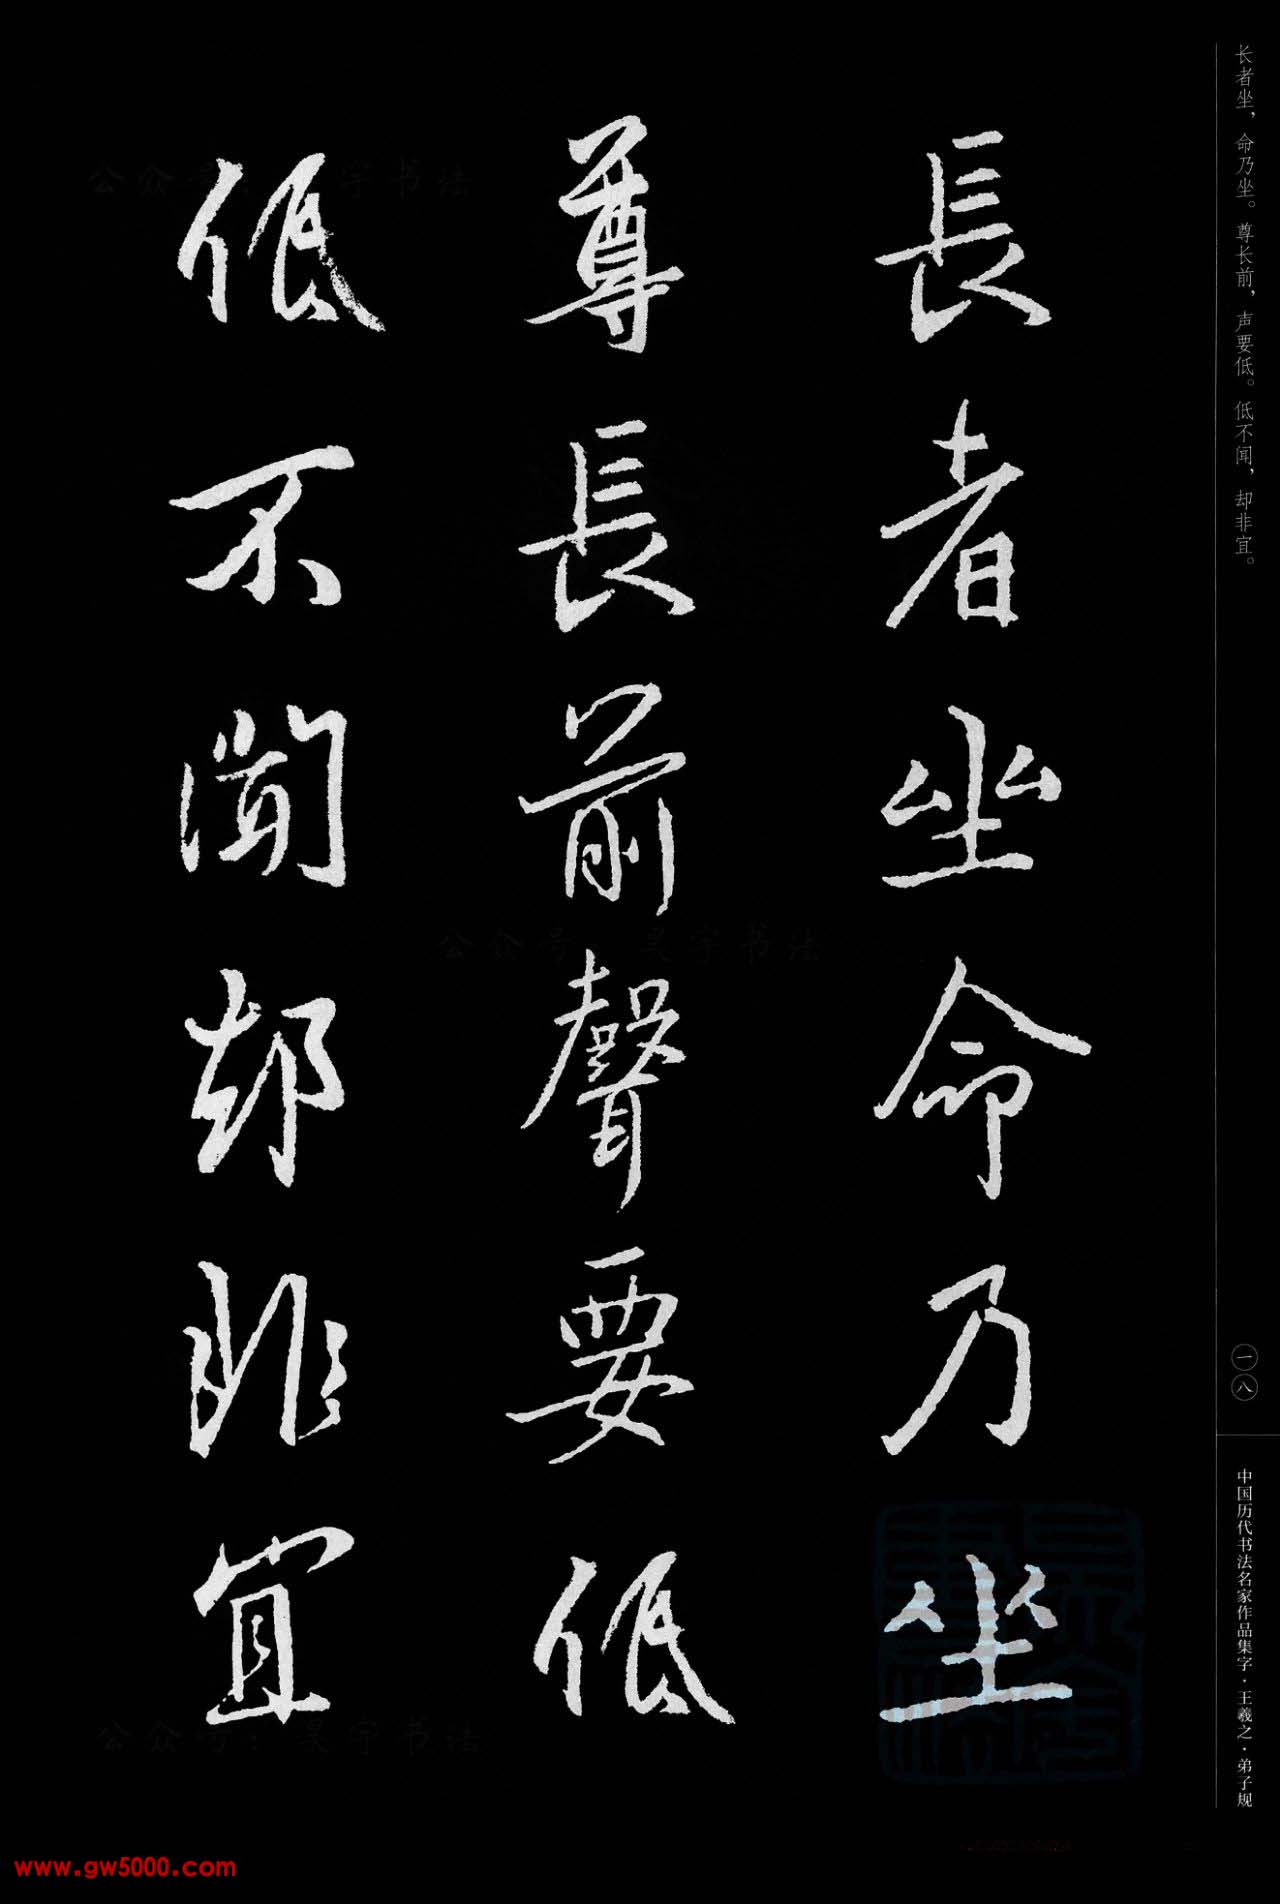 长者坐，命乃坐。尊长前，声要低。低不闻，却非宜。
一八
中国历代书法名家作品集字·王羲之·弟子规
長者坐命乃坐
尊長前聲要低
低不聞却非宜
公众号：昊宇书法
公众号：昊宇书法
公众号：昊宇书法
www.gw5000.com